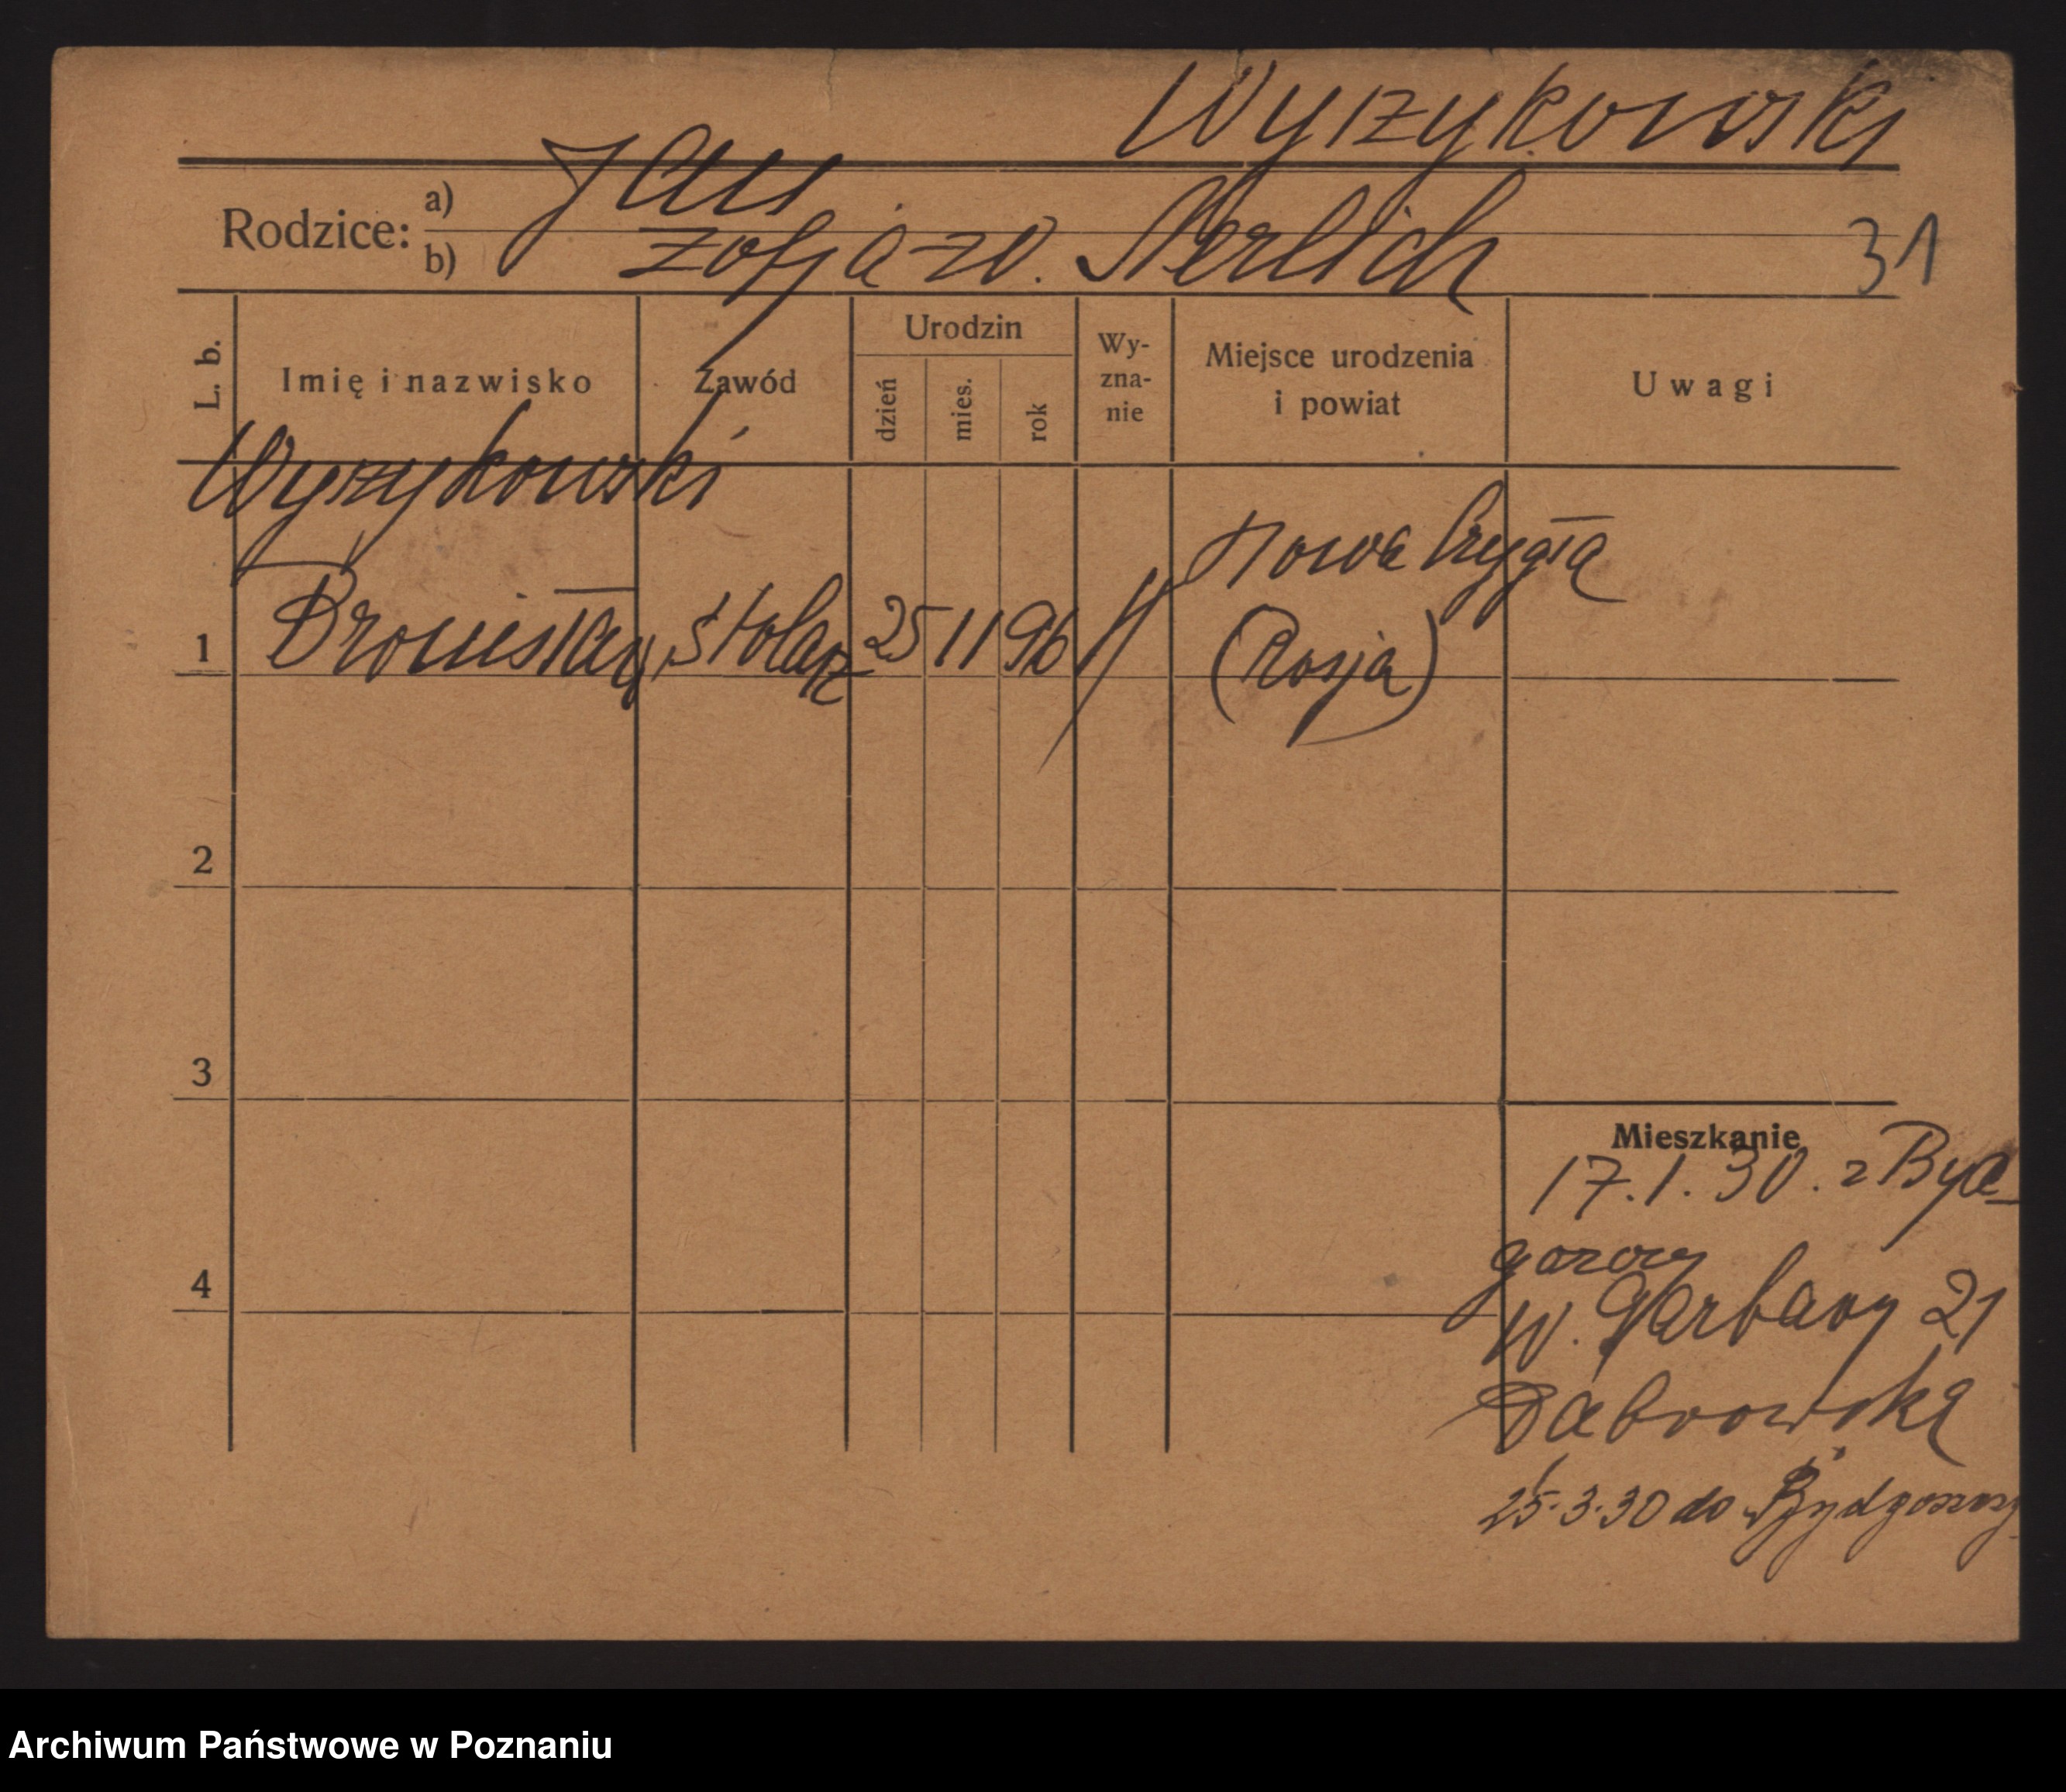 Wyrzykowski
Rodzice:
a) Jan
b) Zofja zd. Nerlich
31
L. b.
Imię i nazwisko
Zawód
Urodzin
dzień
mies.
rok
Wy-
zna-
nie
Miejsce urodzenia
i powiat
Uwagi
Wyrzykowski
Nowa
1 Bronisław stolarz 25 11 96 (Rosja)
2
3
4
Mieszkanie
17.1.30. z Byd-
goszczy
W. Garbary 21
Dąbrowska
25.3.30 do Bydgoszczy
Archiwum Państwowe w Poznaniu